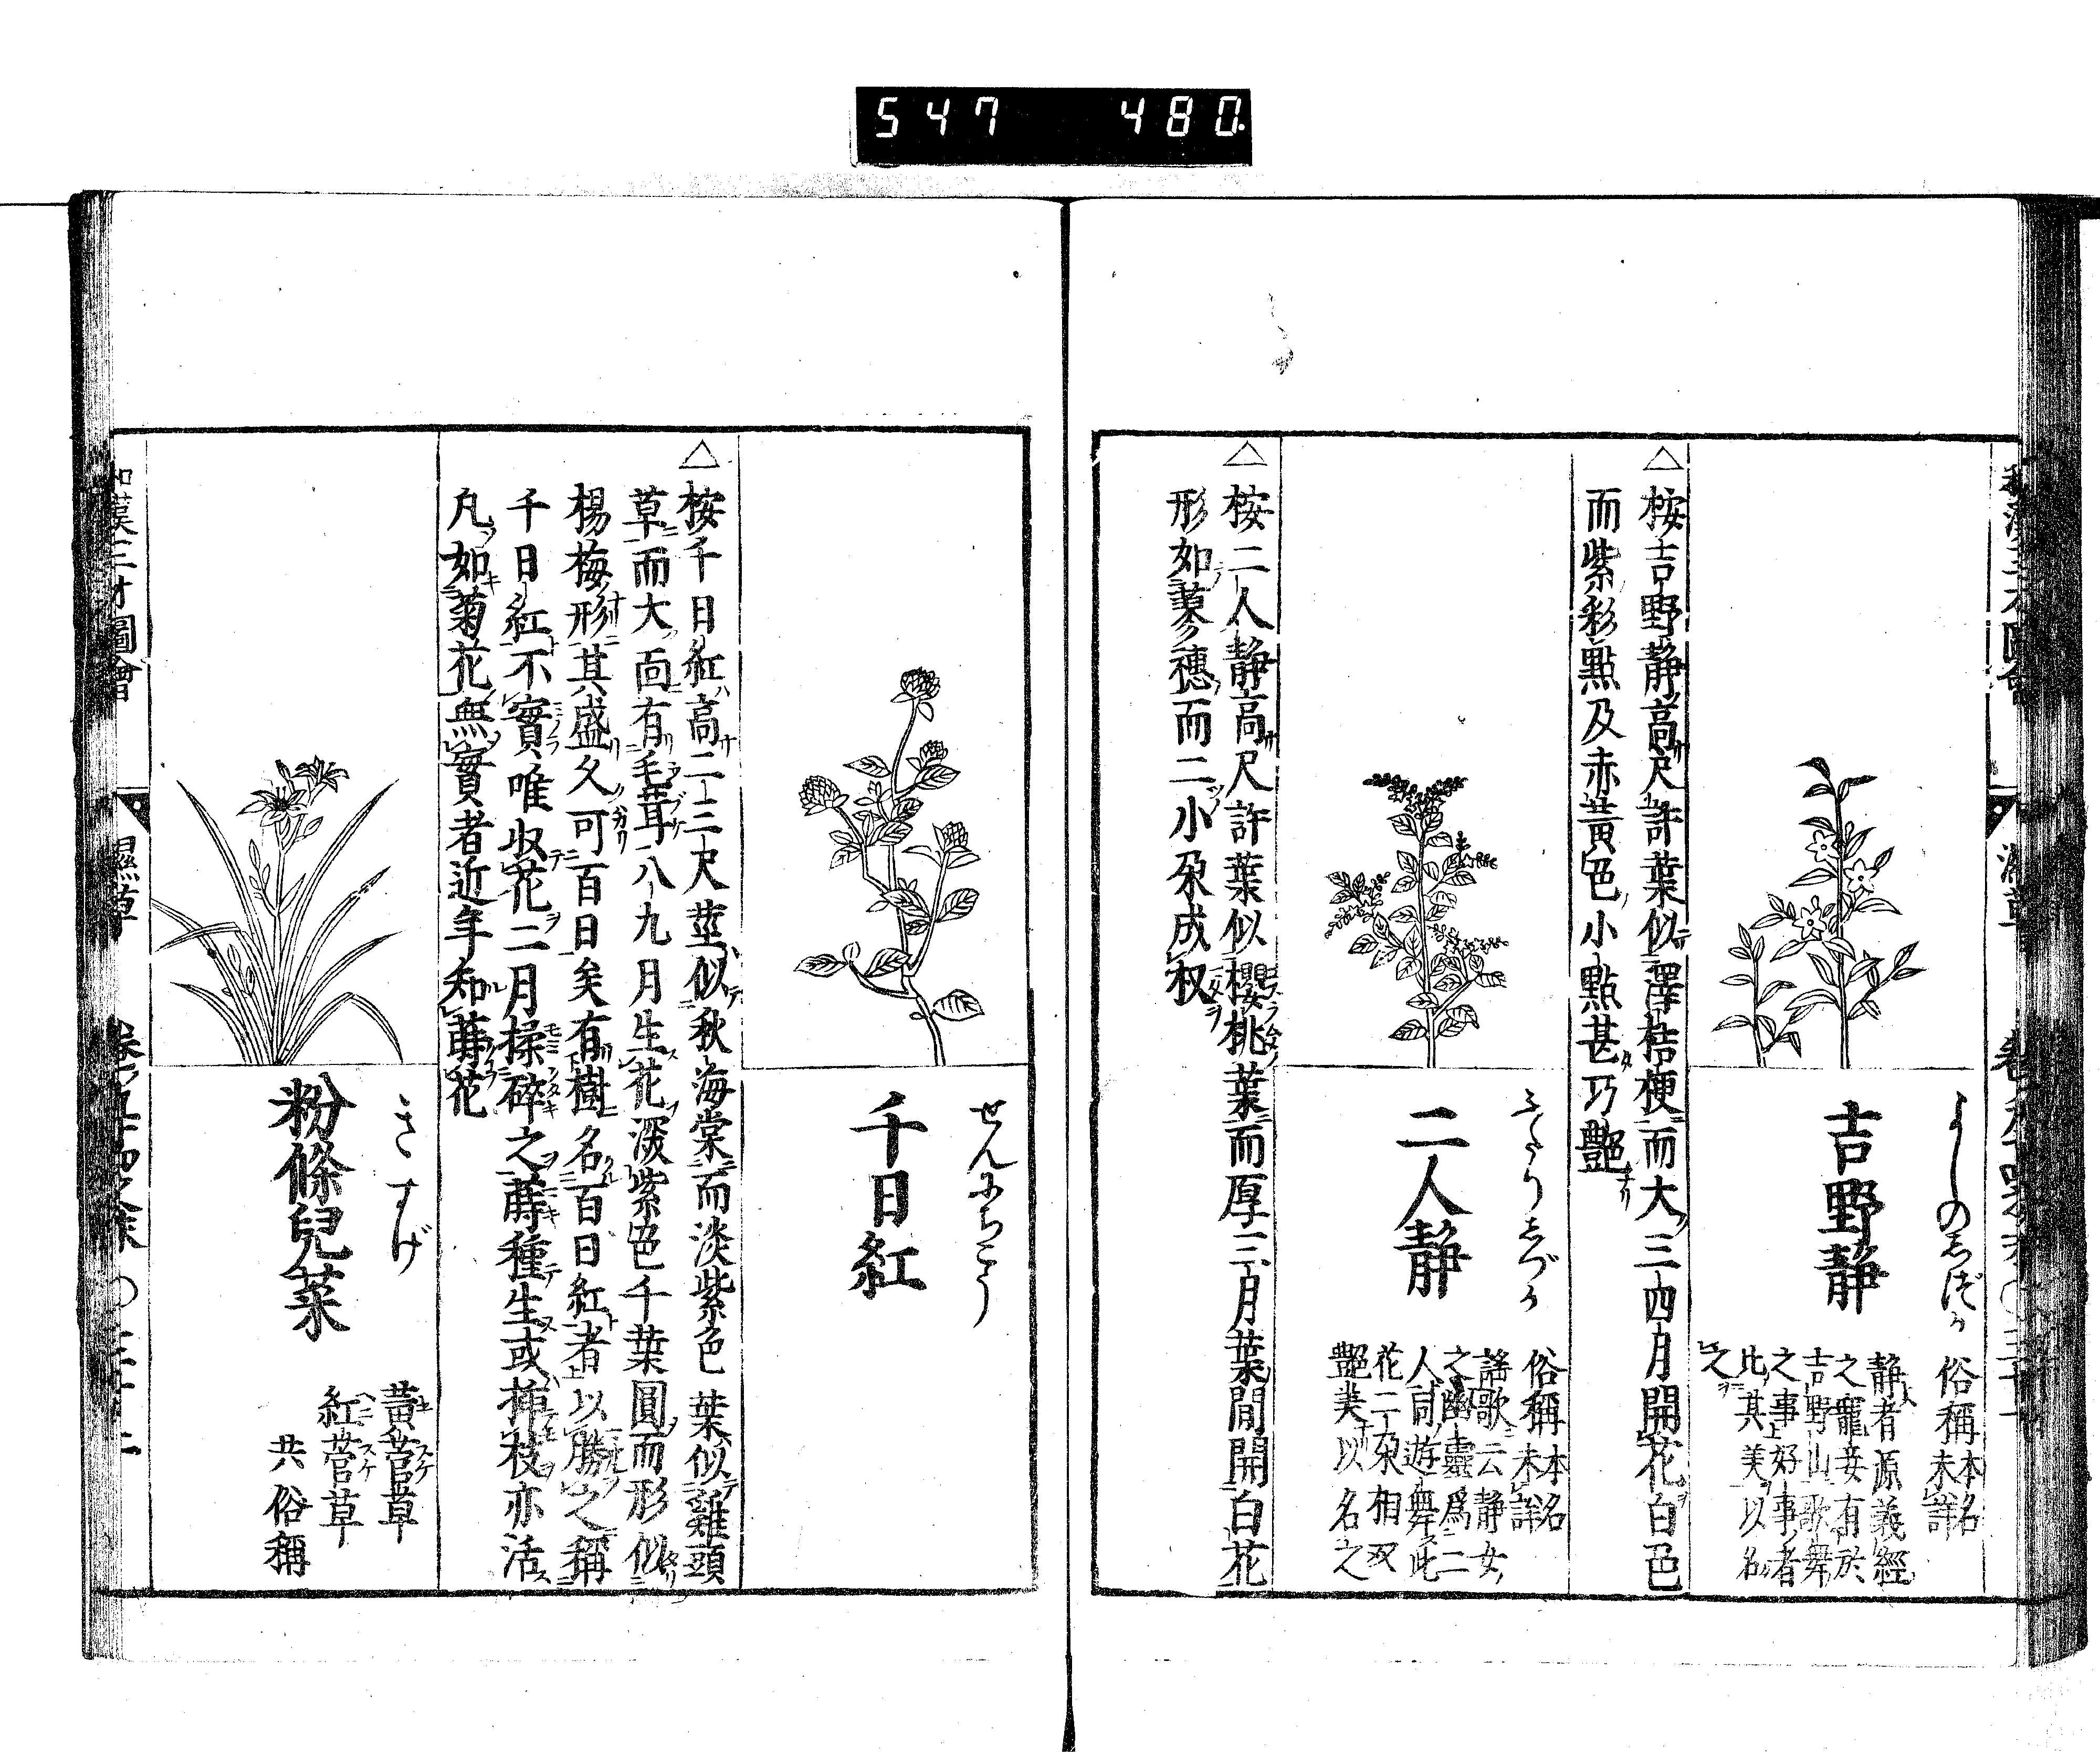 547 480
よしのしづか
吉野靜
俗稱 本名未詳
靜者源義經
之寵妾有於
吉野山歌舞
之事好事者
此其美以名
之
△桉吉野靜高尺許葉似澤桔梗而大三四月開花白色
而紫彩點及赤黃色小點甚巧艷
ふたりしづか
二人靜
俗稱 本名未詳
謠歌云靜女
之幽靈爲二
人同遊舞此
花二朶相双
艷美以名之
△桉二人靜高尺許葉似櫻桃葉而厚三月葉間開白花
形如蓼穗而二小朶成杈
せんにちこう
千日紅
△桉千日紅高二三尺莖似秋海棠而淡紫色葉似雞頭
草而大面有毛茸八九月生花深紫色千葉圓而形似
楊梅形其盛久可百日矣有樹名百日紅者以勝之稱
千日紅不實唯收花二月揉碎之蒔種生或揷枝亦活
凡如菊花無實者近年知蒔花
きすげ
粉條兒菜
黃菅草
紅菅草
共俗稱
和漢三才圖會 濕草